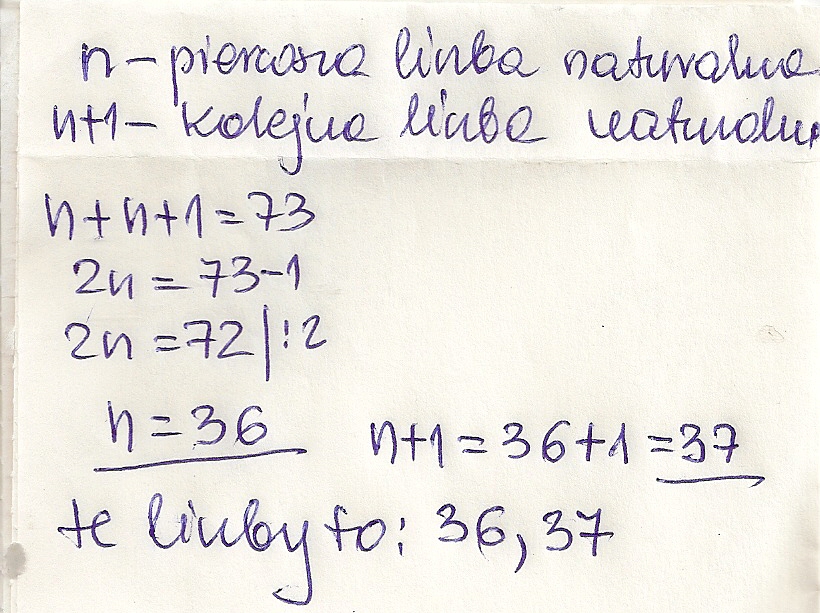 n - pierwsza liczba naturalna
n+1 - kolejna liczba naturalna
n+n+1=73
2n = 73-1
2n = 72 |:2
n = 36 n+1 = 36+1 = 37
te liczby to: 36, 37